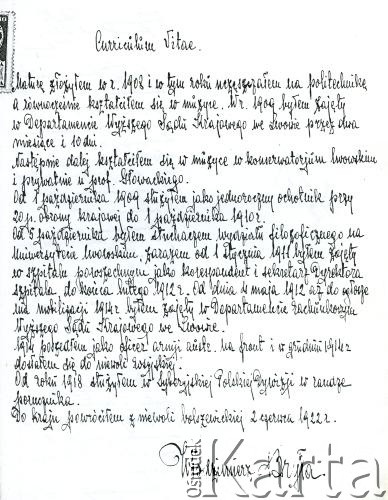 Curriculum Vitae.
Maturę złożyłem w r. 1908 i w tym roku uczęszczałem na politechnikę
a równocześnie kształciłem się w muzyce. W r. 1909 byłem zajęty
w Departamencie Wyższego Sądu Krajowego we Lwowie przez dwa
miesiące i 10 dni.
Następnie dalej kształciłem się w muzyce w konserwatorjum lwowskim
i prywatnie u prof. Głowackiego.
Od 1 października 1909 służyłem jako jednoroczny ochotnik przy
20 p. obrony krajowej do 1 października 1910 r.
Od 5 października byłem słuchaczem wydziału filozoficznego na
Uniwersytecie lwowskim. Zarazem od 1 stycznia 1911 byłem zajęty
w szpitalu powszechnym jako korespondent i sekretarz Dyrektora
szpitala do końca lutego 1912 r. Od dnia 4 maja 1912 aż do
na mobilizacji 1914 r byłem zajęty w Departamencie rachunkowym
Wyższego Sądu Krajowego we Lwowie.
1914 poszedłem jako oficer armji austr. na front i w grudniu 1914 r
dostałem się do niewoli rosyjskiej.
Od roku 1918 służyłem w Syberyjskiej Polskiej Dywizji w randze
porucznika.
Do kraju powróciłem z niewoli bolszewickiej 2 czerwca 1922 r.
Włodzimierz
OŚRODEK Karta